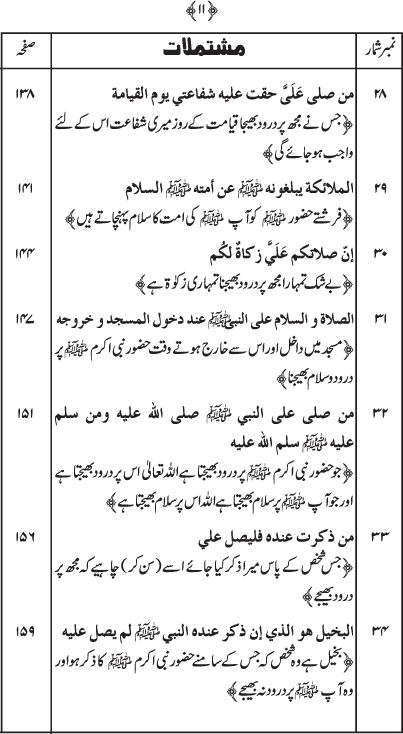 ﴿۱۱﴾
نمبر شمار مشتملات صفحہ
۲۸ من صلى عَلَيَّ حقت عليه شفاعتي يوم القيامة ۱۳۸
﴿جس نے مجھ پر درود بھیجا قیامت کے روز میری شفاعت اس کے لئے
واجب ہو جائے گی﴾
۲۹ الملائكة يبلغونه ﷺ عن أمته ﷺ السلام ۱۴۱
﴿فرشتے حضور ﷺ کو آپ ﷺ کی امت کا سلام پہنچاتے ہیں﴾
۳۰ إنّ صلاتكم عَلَيَّ زكاةٌ لكُم ۱۴۴
﴿بے شک تمہارا مجھ پر درود بھیجنا تمہاری زکوٰۃ ہے﴾
۳۱ الصلاة و السلام على النبي ﷺ عند دخول المسجد و خروجه ۱۴۷
﴿مسجد میں داخل اور اس سے خارج ہوتے وقت حضور نبی اکرم ﷺ پر
درود و سلام بھیجنا﴾
۳۲ من صلى على النبي ﷺ صلى الله عليه ومن سلم ۱۵۱
عليه ﷺ سلم الله عليه
﴿جو حضور نبی اکرم ﷺ پر درود بھیجتا ہے اللہ تعالیٰ اس پر درود بھیجتا ہے
اور جو آپ ﷺ پر سلام بھیجتا ہے اللہ اس پر سلام بھیجتا ہے﴾
۳۳ من ذكرت عنده فليصل علي ۱۵۶
﴿جس شخص کے پاس میرا ذکر کیا جائے اسے (سن کر) چاہیے کہ مجھ پر
درود بھیجے﴾
۳۴ البخيل هو الذي إن ذكر عنده النبي ﷺ لم يصل عليه ۱۵۹
﴿بخیل ہے وہ شخص کہ جس کے سامنے حضور نبی اکرم ﷺ کا ذکر ہو اور
وہ آپ ﷺ پر درود نہ بھیجے﴾